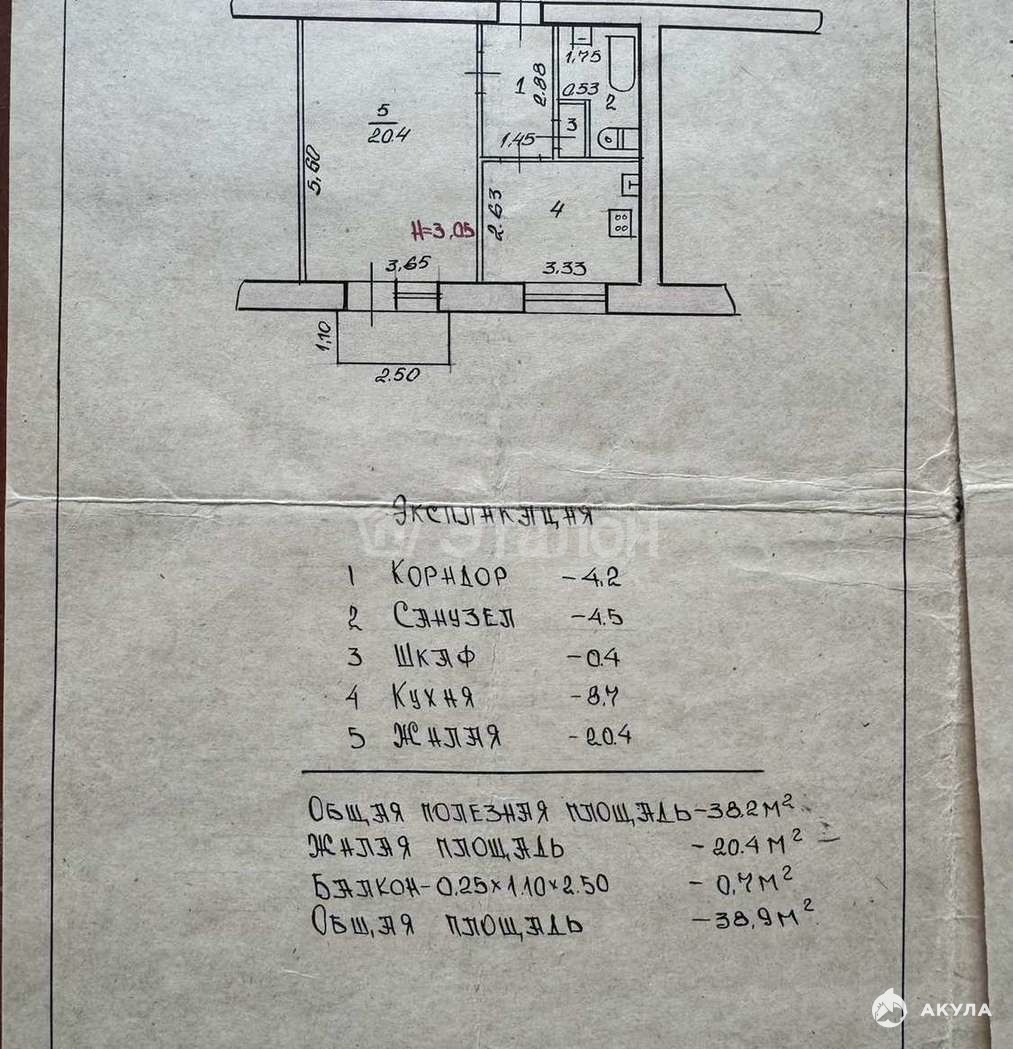 1,75
2.88
1
0.53
2
5
20.4
3
1.45
5,60
2.63
4
H=3,05
3,65
3,33
1,10
2.50
Экспликация
Эталон
1 Коридор -4,2
2 Санузел -4.5
3 Шкаф -0.4
4 Кухня -8,7
5 Жилая -20.4
Общая полезная площадь-38.2 м²
Жилая площадь - 20.4 м²
Балкон-0,25×1.10×2.50 - 0,7 м²
Общая площадь -38,9 м²
АКУЛА